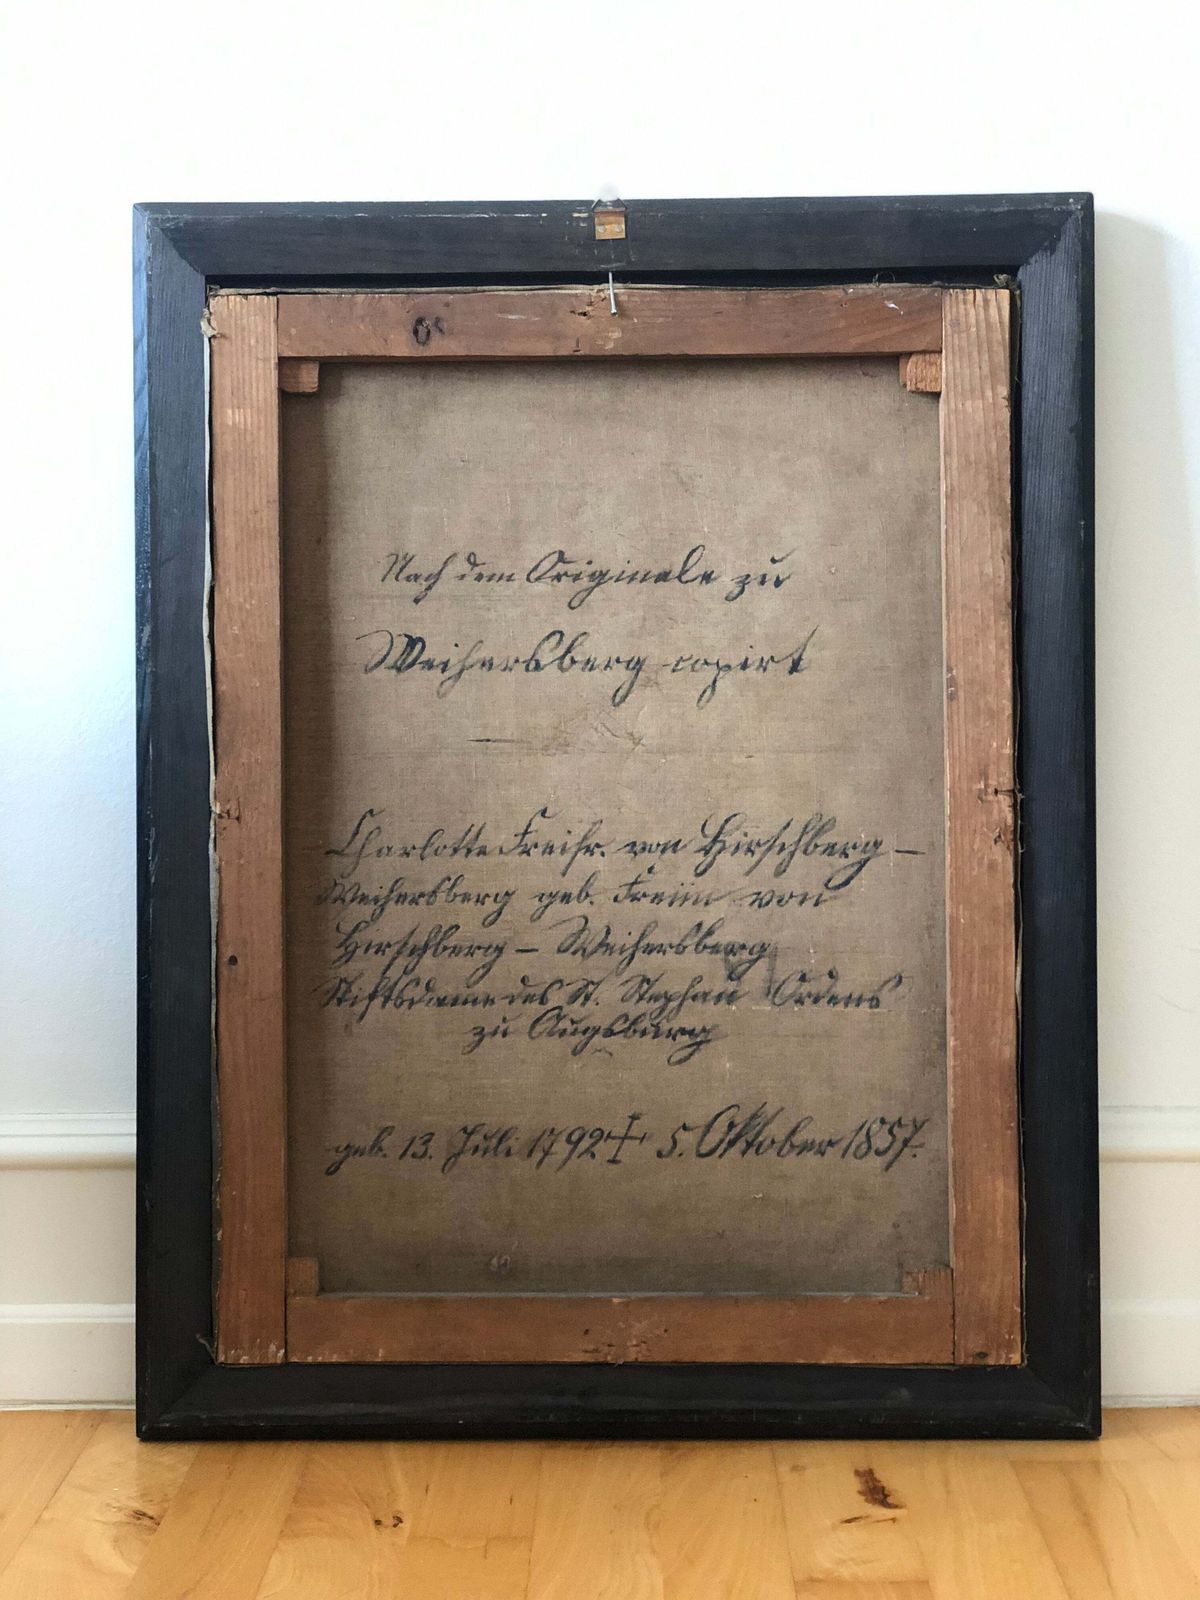 Nach dem Originale zu
Weihersberg copirt
Charlotte Freifr. von Hirschberg –
Weihersberg geb. Freiin von
Hirschberg – Weihersberg
Stiftsdame des St. Stephan Ordens
zu Augsburg
geb. 13. Juli 1792 + 5. Oktober 1857.